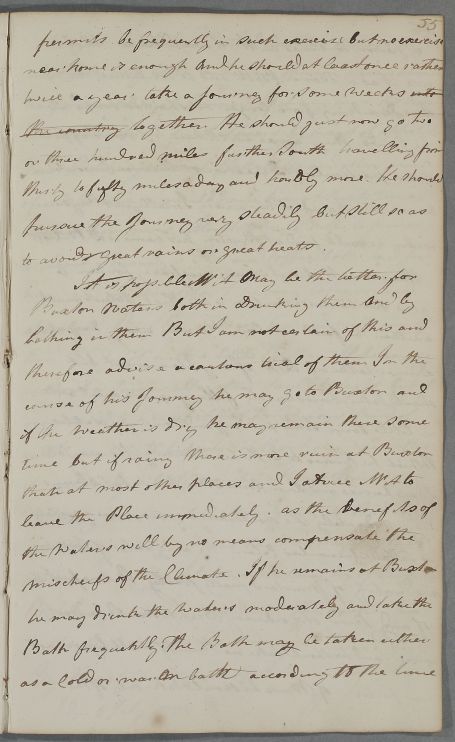 55
permits be frequently in such exercise but no exercise
near home is enough and he should at least once rather
twice a year take a Journey for some weeks into
the country together. He should just now go two
or three hundred miles further South travelling from
thirty to fifty miles a day and hardly more. He should
pursue the Journey very steadily but still so as
to avoid great rains or great heats.
It is possible Mr A may be the better for
Buxton Waters both in Drinking them and by
bathing in them But I am not certain of this and
therefore advise a cautious trial of them In the
course of his Journey he may go to Buxton and
if the weather is dry he may remain there some
time but if rainy there is more rain at Buxton
than at most other places and I advise Mr A to
leave the Place immediately. as the benefits of
the Waters will by no means compensate the
mischiefs of the Climate. If he remains at Buxton
he may drink the Waters moderately and take the
Bath frequently. The Bath may be taken either
as a Cold or warm bath according to the time